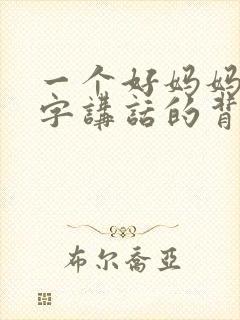 一个好妈妈
字講話的背
布尔喬亞